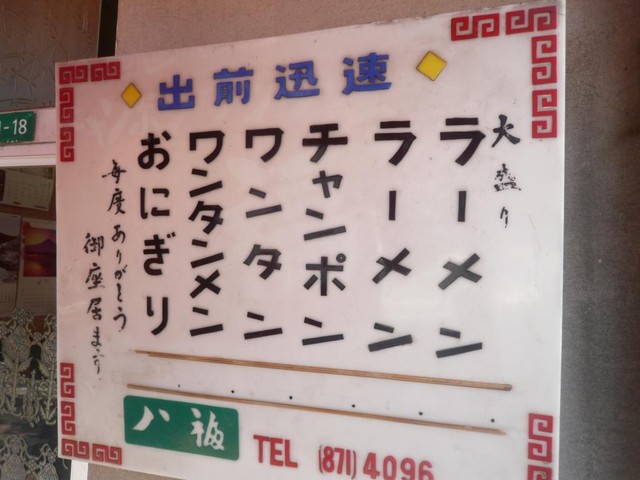 出前迅速
大盛り
ラーメン
ラーメン
チャンポン
ワンタン
ワンタンメン
おにぎり
毎度ありがとう
御座居ます
八板
TEL (871)4096
-18